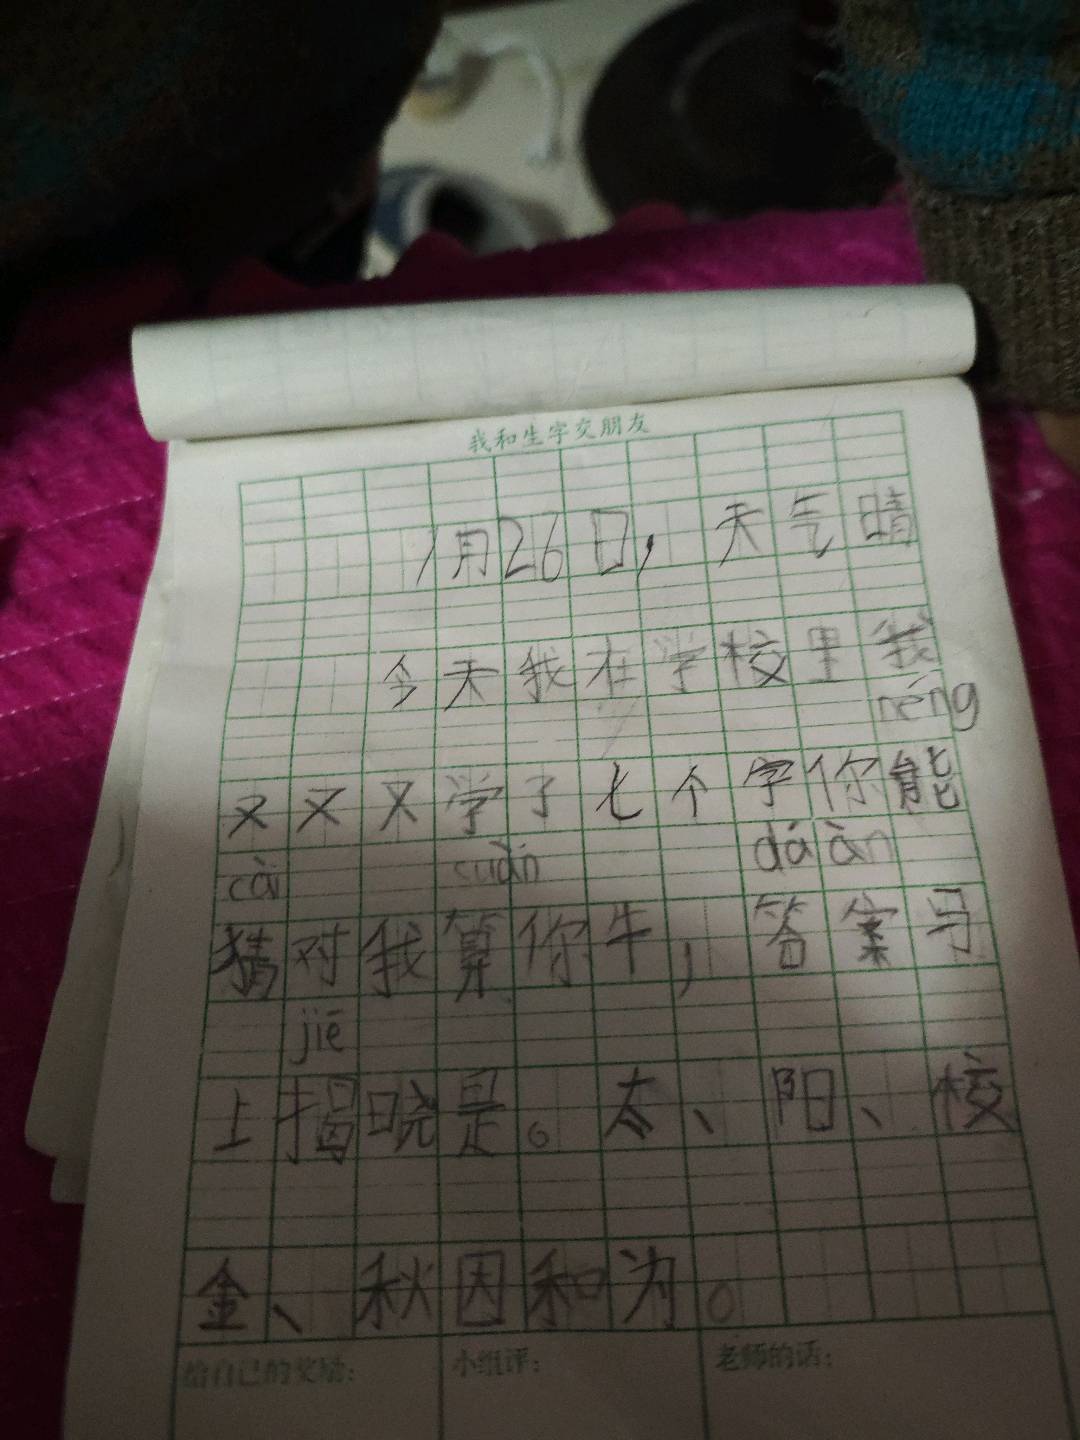 我和生字交朋友
1月26日，天气晴
今天我在学校里我
néng
又又又学了七个字你能
cāi suàn dá àn
猜对我算你牛，答案马
jiē
上揭晓是。太、阳、校
金、秋因和为。
给自己的奖励： 小组评： 老师的话：